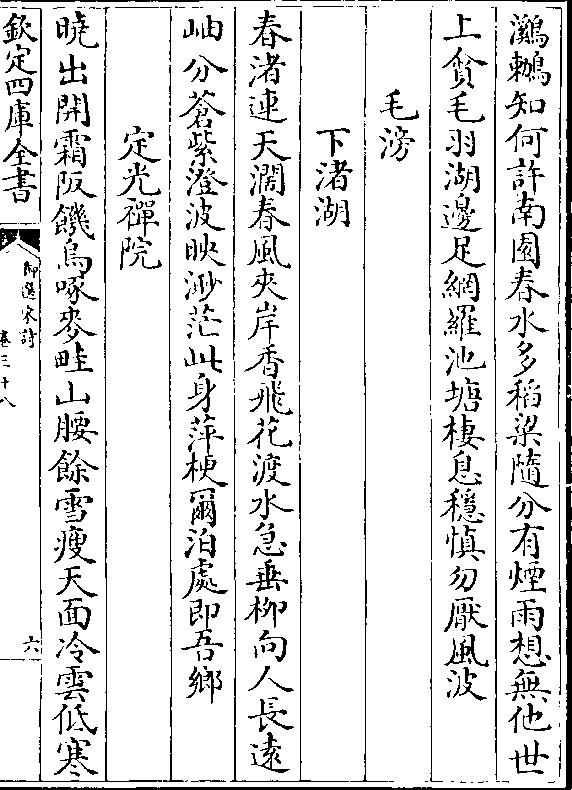 鸂鶒知何許南園春水多稻粱隨分有煙雨想無他世
上貪毛羽湖邊足網羅池塘棲息穩慎勿厭風波
毛滂
下渚湖
春渚連天濶春風夾岸香飛花渡水急垂柳向人長遠
岫分蒼紫澄波映渺茫此身萍梗爾泊處即吾鄉
定光禪院
曉出開霜阪饑烏啄麥畦山腰餘雪瘦天面冷雲低寒
欽定四庫全書
御選宋詩
卷三十八
六